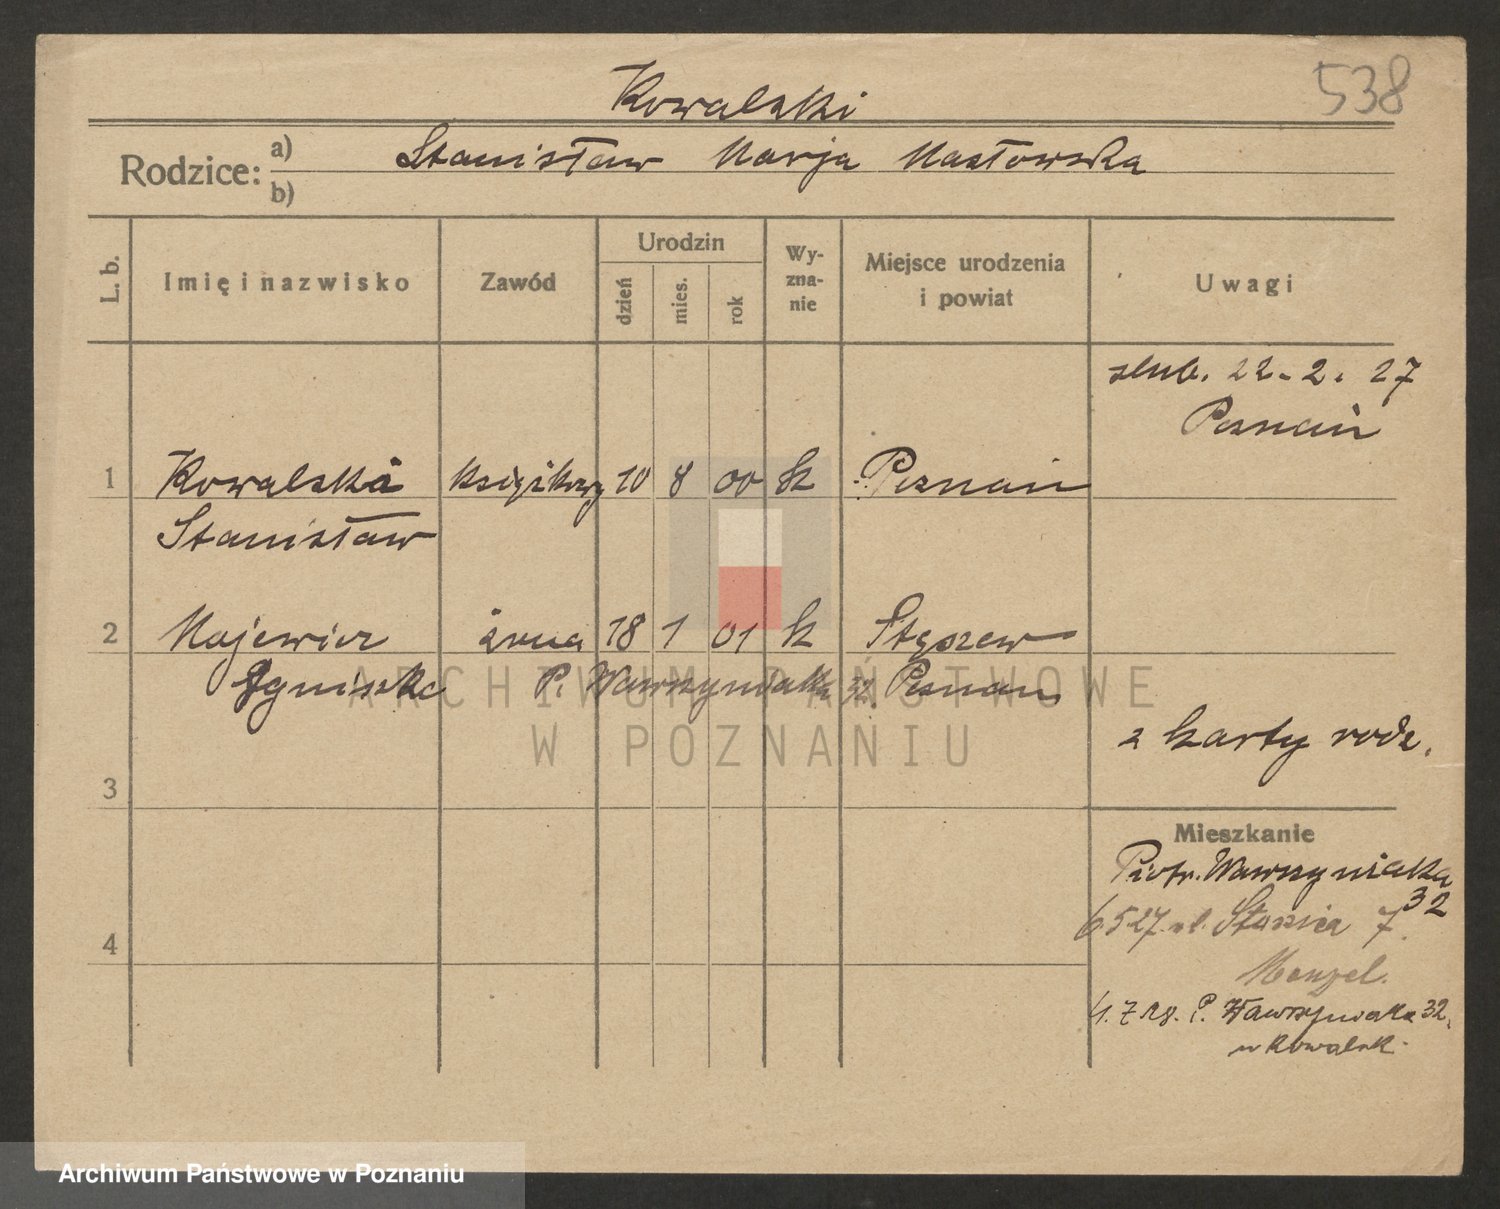 538
Kowalski
Rodzice: a) Stanisław Marja Masłowska
b)
L. b.
Imię i nazwisko
Zawód
Urodzin
dzień
mies.
rok
Wy-
zna-
nie
Miejsce urodzenia
i powiat
Uwagi
ślub. 22-2. 27
Poznań
1 Kowalski księgkowy 10 8 00 k Poznań
Stanisław
2 Majewicz żona 18 1 01 k Stęszew
P. Wawrzyniaka 32. Poznań
z karty rodz.
3
Mieszkanie
Piotr. Wawrzyniaka
32
6527. ul. Staszica 7.
4
Menzel.
P. Wawrzyniaka 32.
u Kowalsk.
ARCHIWUM PAŃSTWOWE
W POZNANIU
Archiwum Państwowe w Poznaniu